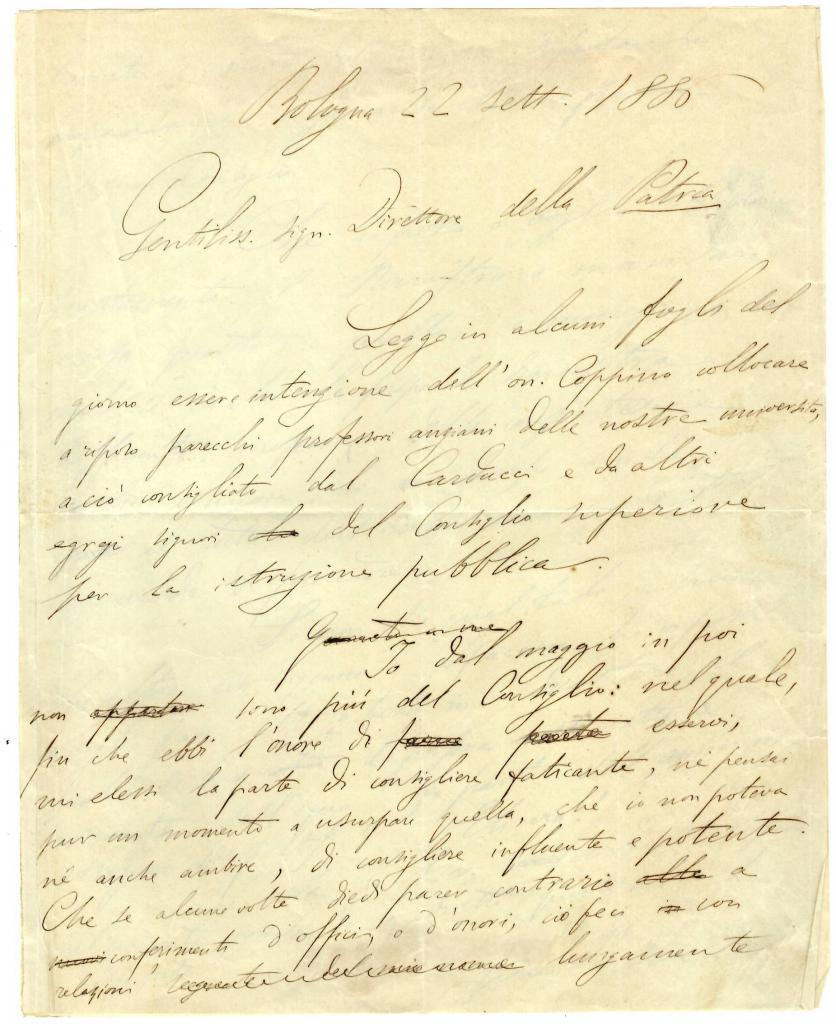 Bologna 22 sett. 1886
Gentiliss. sign. Direttore della Patria
Leggo in alcuni fogli del
giorno essere intenzione dell'on. Coppino collocare
a riposo parecchi professori anziani delle nostre università,
a ciò consigliato dal Carducci e da altri
egregi signori del Consiglio superiore
per la istruzione pubblica.
Io dal maggio in poi
non sono più del Consiglio: nel quale,
fin che ebbi l'onore di esservi,
mi elessi la parte di consigliere faticante, né pensai
pur un momento a usurpare quella, che io non poteva
né anche ambire, di consigliere influente e potente.
Che se alcune volte diedi parer contrario a
conferimenti d'offici o d'onori, ciò feci con
relazioni lungamente